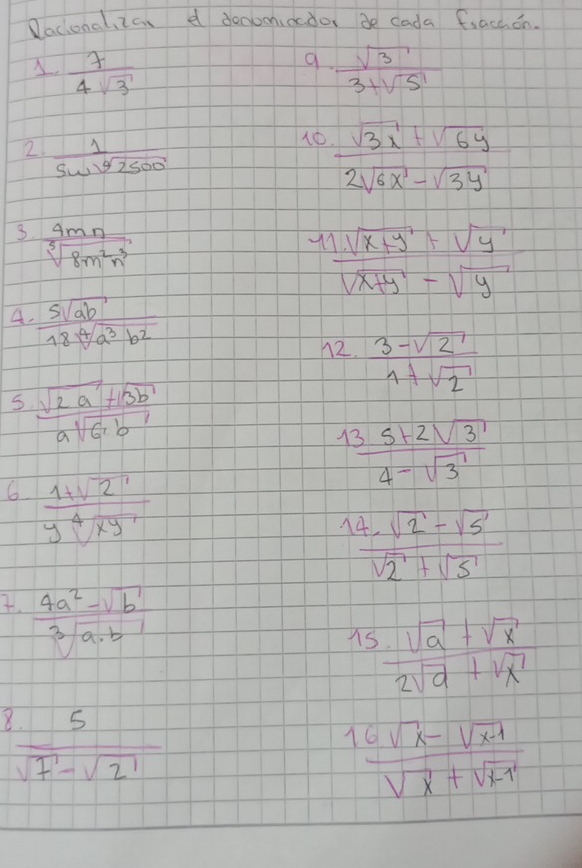 Racionalizar el denominador de cada fracción.
1. 7 / 4√3
2. 1 / 5w ⁹√2500
3. 4mn / ³√8m²n³
4. 5√ab / 18 ⁴√a³b²
5. √2a + √3b / a√6·b
6. 1+√2 / y ⁴√xy
7. 4a² - √b / ³√a·b
8. 5 / √7 - √2
9. √3 / 3+√5
10. √3x + √6y / 2√6x - √3y
11. √x+y + √y / √x+y - √y
12. 3-√2 / 1+√2
13 5+2√3 / 4-√3
14. √2 - √5 / √2 + √5
15. √a + √x / 2√a + √x
16 √x - √x-1 / √x + √x-1